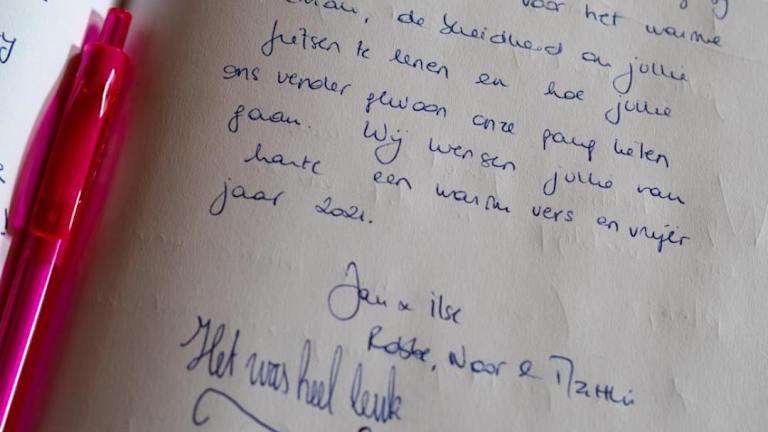 voor het warme
de om jullie
fietsen te lenen en hoe jullie
ons verder gewoon onze gang lieten
gaan. Wij wensen jullie van
harte een warm vers en vrijer
jaar 2021.
Jan & Ilse
Robbe, Noor & Matthi
Het was heel leuk